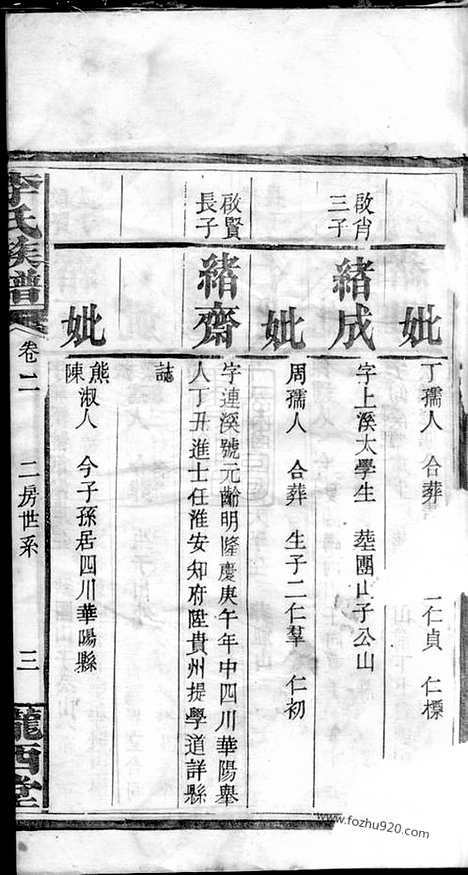 妣
丁孺人 合葬 一仁貞 仁標
啟肖三子
緒成
字上溪太學生 塟團山子公山
妣
周孺人 合葬 生子二仁羣 仁初
啟賢長子
緒齋
字連溪號元齡明隆慶庚午年中四川華陽舉
人丁丑進士任淮安知府陞貴州提學道詳縣
誌
妣
熊
陳淑人 今子孫居四川華陽縣
李氏族譜 卷二 二房世系 三 隴西堂
www.fozhu920.com